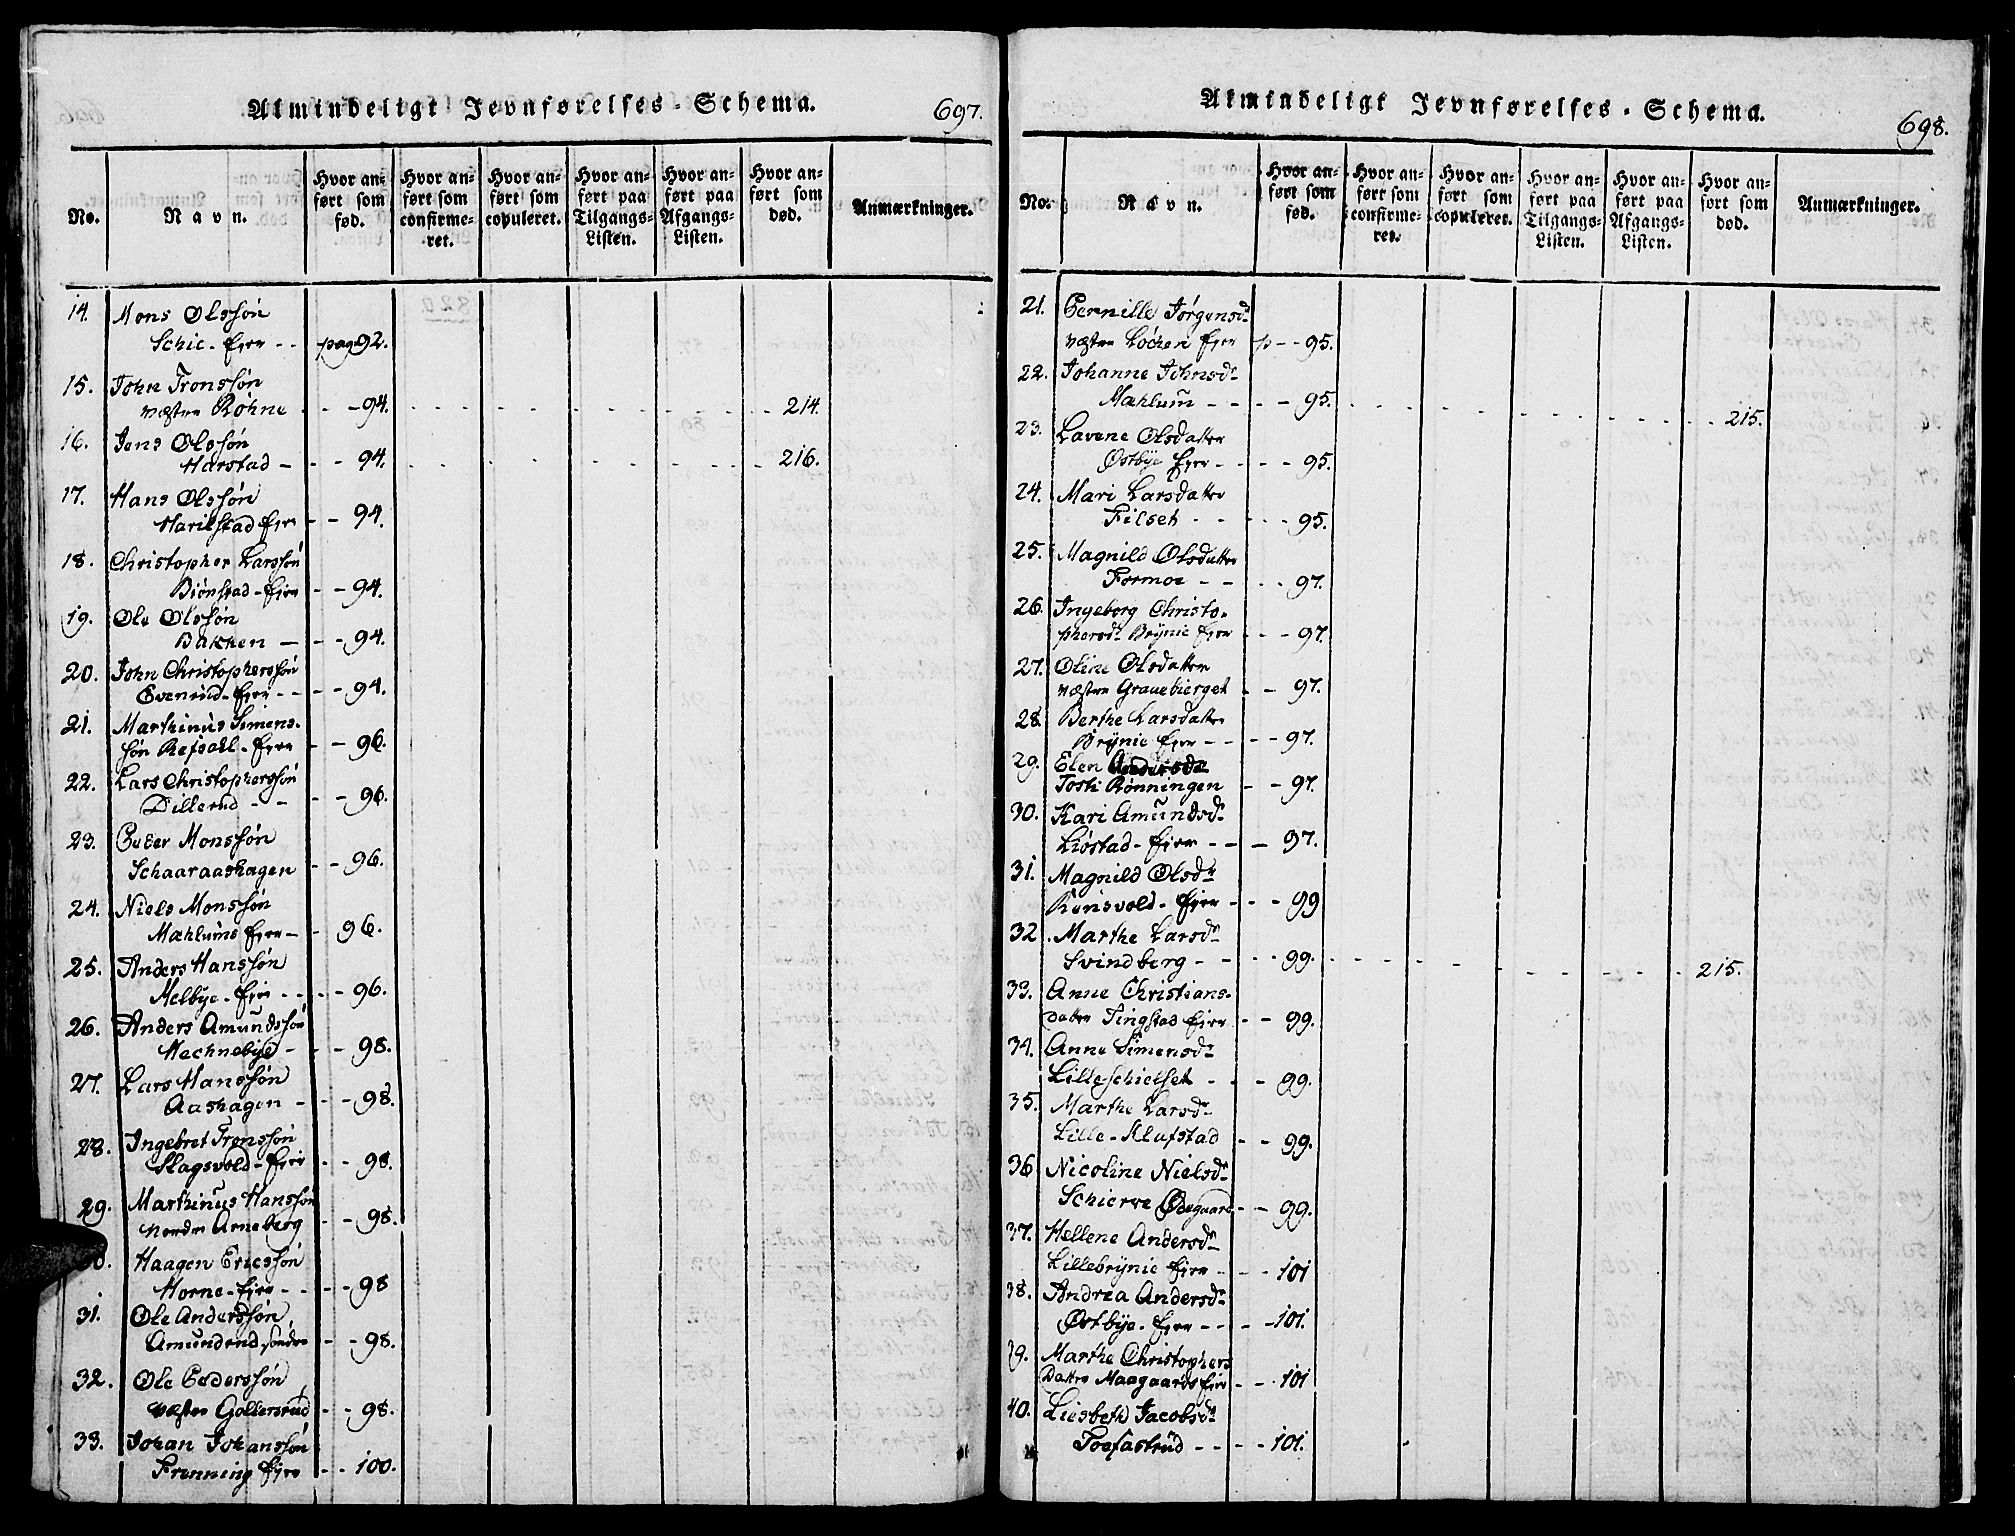 Almindeligt Jevnførelses-Schema. 697.
No. Navn. Hvor anført som fød. Hvor anført som confirmeret. Hvor anført som copuleret. Hvor anført paa Tilgangs-Listen. Hvor anført paa Afgangs-Listen. Hvor anført som død. Anmærkninger.
14. Mons Olssøn
Schie-Ejer - - pag 92.
15. John Tronssøn
væstre Røhne - - - 94. 214.
16. Jens Olssøn
Harstad - - - 94. 216.
17. Hans Olssøn
Harilstad Ejer - - 94.
18. Christopher Larssøn
Biønstad-Ejer - - 94.
19. Ole Olssøn
Bakken - - - 94.
20. John Christopherssøn
Evenrud-Ejer - - - - 94.
21. Marthinus Simens-
søn Refsahl-Ejer - - 96.
22. Lars Christopherssøn
Dillerud - - - - 96.
23. Peder Monssøn
Schaaraashagen - - 96.
24. Niels Monssøn
Mæhlums Ejer - - 96.
25. Anders Hanssøn
Melbye-Ejer - - - - 96.
26. Anders Amundssøn
Mechnebye - - - 98.
27. Lars Hanssøn
Aashagen - - - 98.
28. Ingebret Tronssøn
Slagsvold-Ejer - - 98.
29. Marthinus Hanssøn
Nordre Arneberg - - 98.
30. Haagen Ericssøn
Horne-Ejer - - - - 98
31. Ole Anderssøn
Amundrud søndre - - 98.
32. Ole Pederssøn
væstre Gollersrud - - 98.
33. Johan Johanssøn
Frenning Ejer - - 100.
Almindeligt Jevnførelses-Schema. 698.
No. Navn. Hvor anført som fød. Hvor anført som confirmeret. Hvor anført som copuleret. Hvor anført paa Tilgangs-Listen. Hvor anført paa Afgangs-Listen. Hvor anført som død. Anmærkninger.
21. Pernille Jørgensdr
væstre Løchen Ejer p - - 95.
22. Johanne Johnsdr
Mæhlum - - - - 95. 215.
23. Lavene Olsdatter
Østbye Ejer - - - - 95.
24. Mari Larsdatter
Filset - - - - 95.
25. Magnild Olsdatter
Formoe - - - - 97.
26. Ingeborg Christo-
phersdr Brynie Ejer - - - 97.
27. Oline Olsdatter
væstre Gravebierget - - 97.
28. Berthe Larsdatter
Brynie Ejer - - - - 97.
29. Elen Andersdr
Tosti Rønningen - - 97.
30. Kari Amundsdr
Liøstad-Ejer - - - 97.
31. Magnild Olsdr
Rønsvold-Ejer - - - 99
32. Marthe Larsdr
Svindberg - - - - 99. 215.
33. Anne Christians-
datter Tingstad Ejer - - 99.
34. Anne Simensdr
Lilleschielset - - - 99.
35. Marthe Larsdr
Lille-Klufstad - - 99.
36 Nicoline Nielsdr
Schierve Ødegaard - - 99.
37. Hellene Andersdr
Lillebrynie Ejer - - - 101
38. Andrea Andersdr
Østbye-Ejer - - - - 101.
39. Marthe Christophers
Datter Maagaards Ejer - - 101
40. Liesbeth Jacobsdr
Toefastrud - - - - 101.